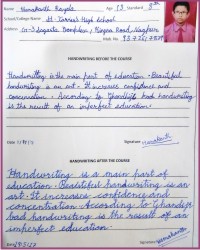 Age 13 Standard 8th
School/College Name St. Xavier's High School
Address
Mob. No.
HANDWRITING BEFORE THE COURSE
Handwriting is the main part of education. Beautiful
handwriting is an art. It increases confidence and
concentration. According to Ghandiji bad handwriting
is the result of an imperfect education.
Date Signature
HANDWRITING AFTER THE COURSE
Handwriting is a main part of
education. Beautiful handwriting is an
art. It increases confidence and
concentration. According to Ghandiji
bad handwriting is the result of an
imperfect education.
Signature